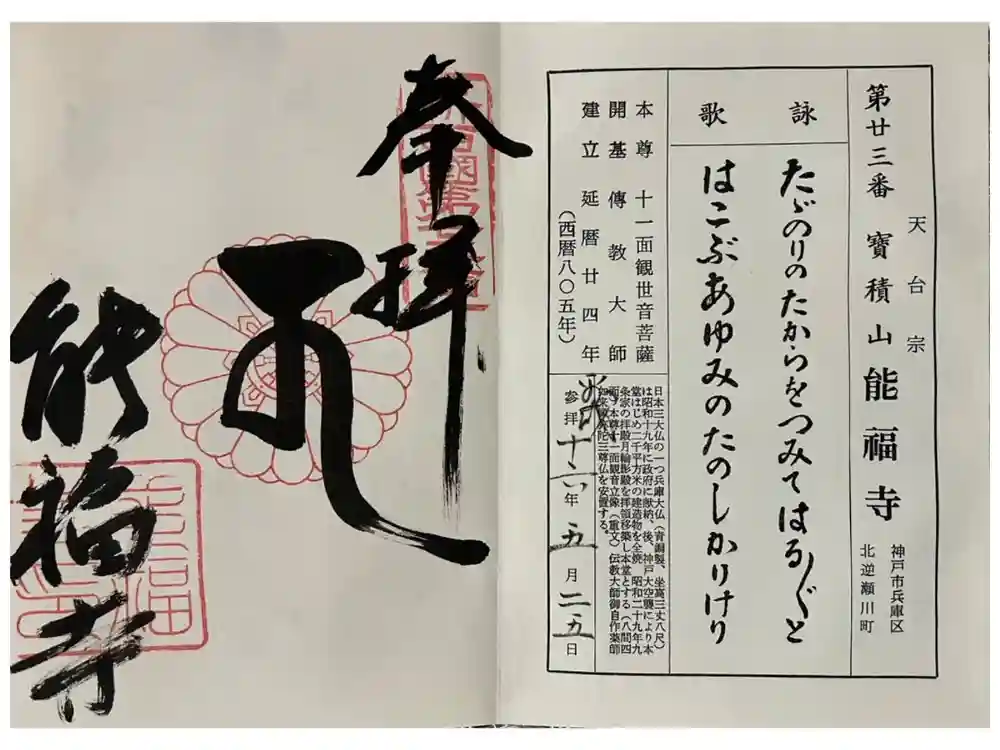 天台宗
第廿三番 寶積山 能福寺
神戸市兵庫区
北逆瀬川町
詠歌
たゞのりのたからをつみてはる〴〵と
はこぶあゆみのたのしかりけり
本尊 十一面観世音菩薩
開基 傳教大師
建立 延暦廿四年
(西暦八〇五年)
日本三大仏の一つ兵庫大仏(青銅製、坐高三丈八尺)
は昭和十九年に政府に献納、後、神戸大空襲により本
堂はじめ二千平方米の建造物を全焼 昭和二十九年九
条家の拝殿月輪影殿を拝領移築し本堂とする(八間四
面)本尊十一面観音立像(重文)伝教大師御自作薬師
如来阿弥陀三尊仏を安置する。
参拝 平成十六年五月二五日
奉拝
能福寺